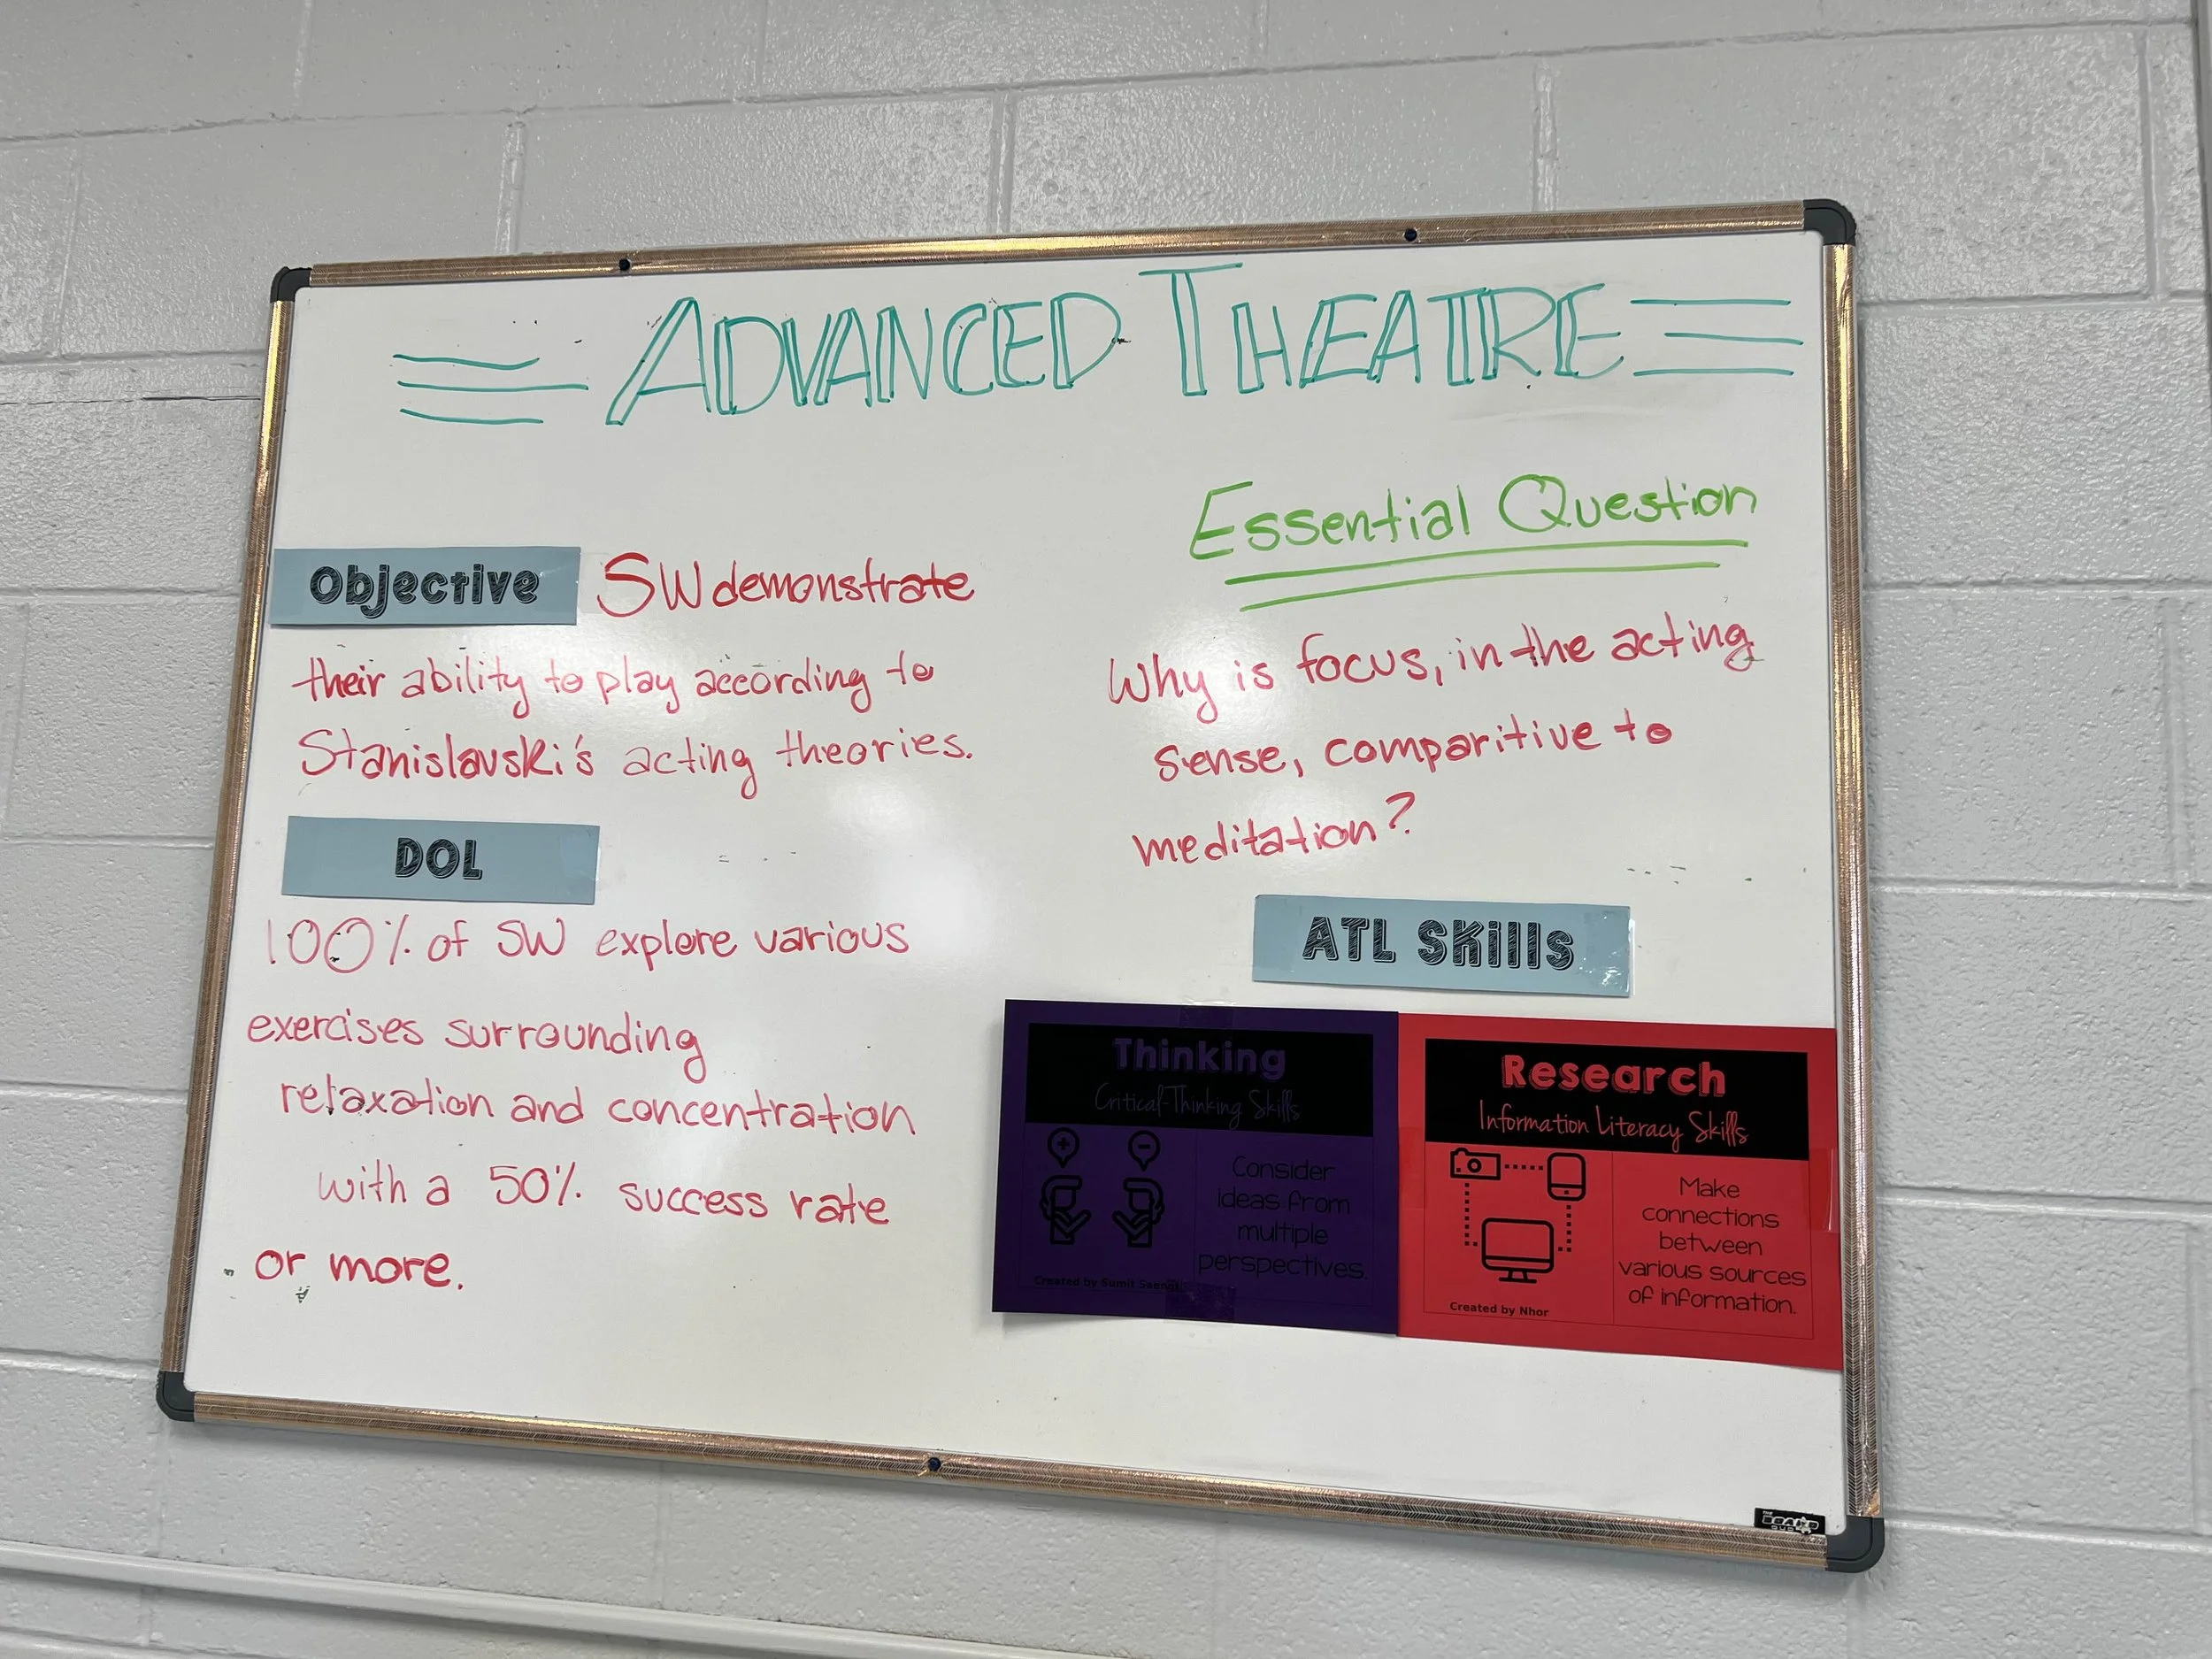 ADVANCED THEATRE
Objective SW demonstrate
their ability to play according to
Stanislavski's acting theories.
DOL
100% of SW explore various
exercises surrounding
relaxation and concentration
with a 50% success rate
or more.
Essential Question
Why is focus, in the acting
sense, comparitive to
meditation?
ATL Skills
Thinking
Critical-Thinking Skills
Consider
ideas from
multiple
perspectives.
Created by Sumit
Research
Information Literacy Skills
Make
connections
between
various sources
of information.
Created by Nhor
THE
BOARD
DUDES